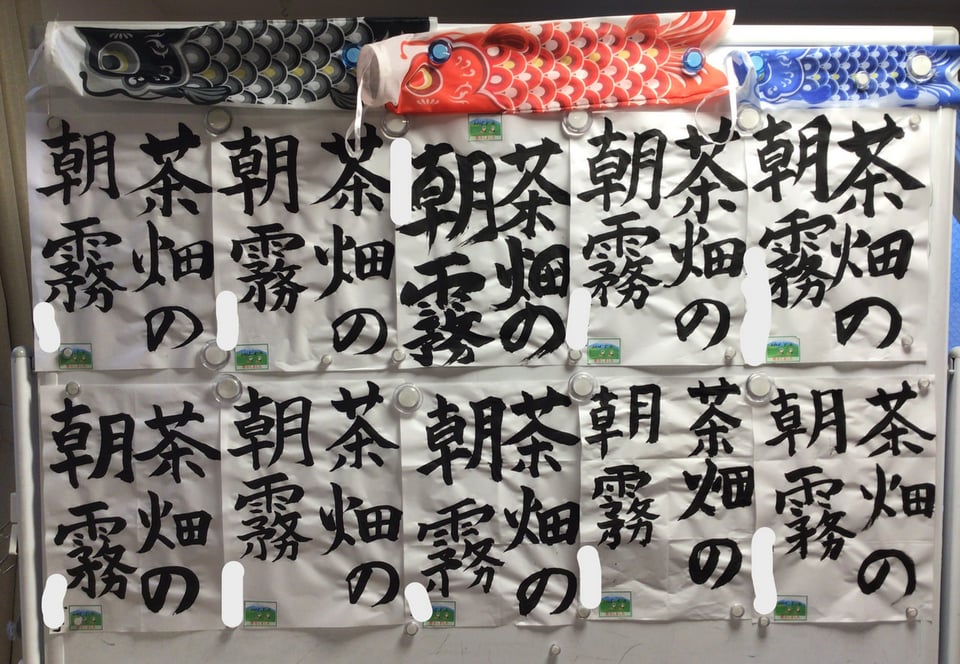 茶畑の
朝霧
茶畑の
朝霧
茶畑の
朝霧
茶畑の
朝霧
茶畑の
朝霧
茶畑の
朝霧
茶畑の
朝霧
茶畑の
朝霧
茶畑の
朝霧
茶畑の
朝霧